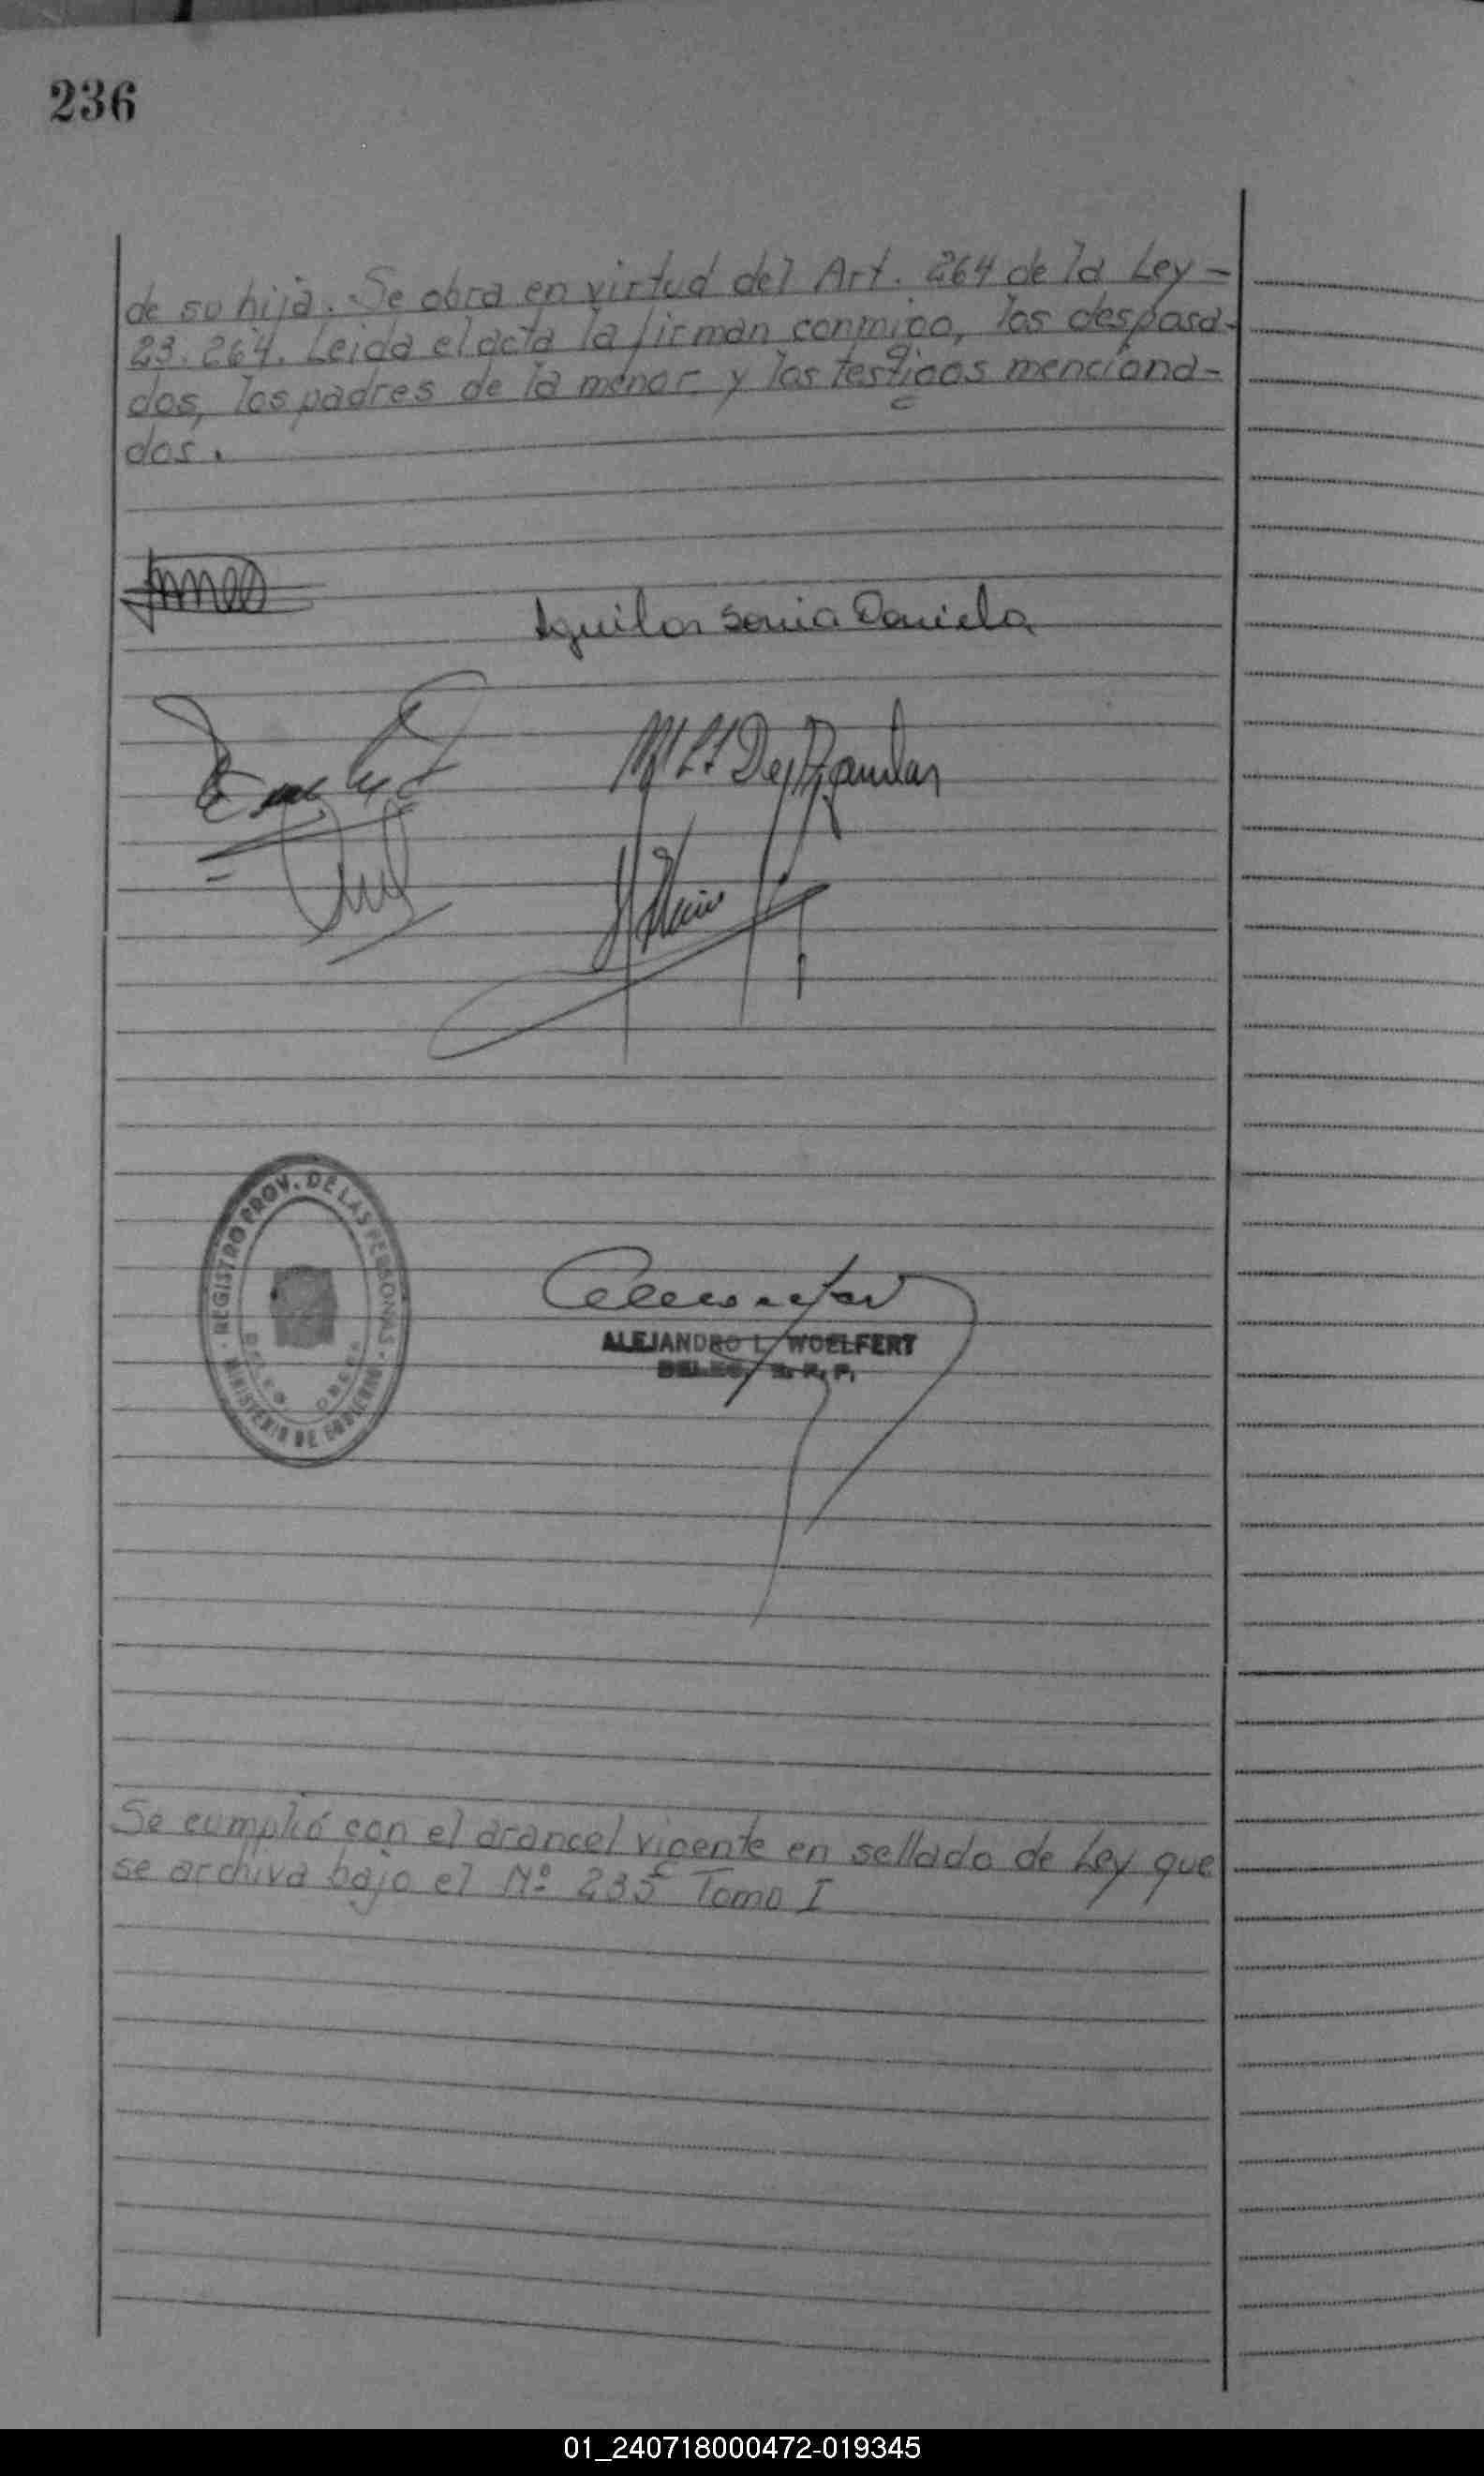 236
de su hija. Se obra en virtud del Art. 264 de la Ley -
23.264. Leida el acta la firman conmigo, los desposa-
dos, los padres de la menor y los testigos menciona-
dos.
Aguilar Sonia Daniela
De Aguilar
REGISTRO PROV. DE LAS PERSONAS
MINISTERIO DE GOBIERNO
ALEJANDRO L. WOELFERT
DELEG. R. P. P.
Se cumplió con el arancel vigente en sellado de Ley que
se archiva bajo el Nº 235 Tomo I
01_240718000472-019345